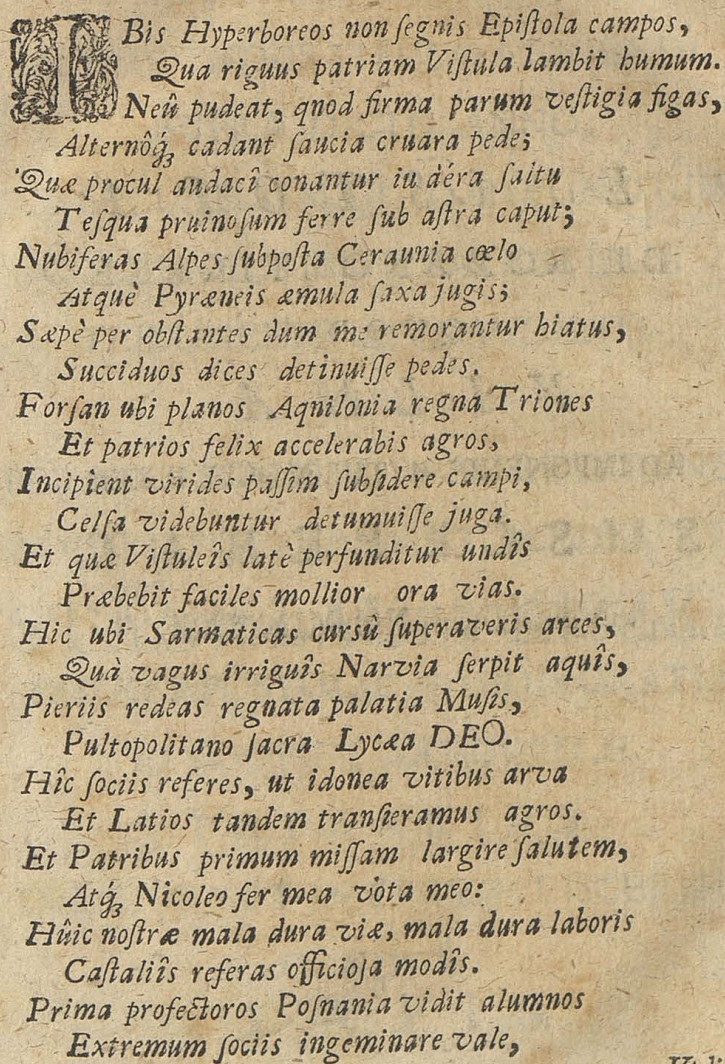 IBis Hyperboreos non ſegnis Epiſtola campos,
Qua riguus patriam Viſtula lambit humum.
Neû pudeat, qnod firma parum veſtigia figas,
Alternôq́ꝫ cadant ſaucia cruara pede;
Quæ procul audacî conantur iu àéra ſaltu
Teſqua pruinoſum ferre ſub aſtra caput;
Nubiferas Alpes ſubpoſta Ceraunia cœlo
Atquè Pyræneis æmula ſaxa jugis;
Sæpè per obſtantes dum me remorantur hiatus,
Succiduos dices detinuiſſe pedes.
Forſan ubi planos Aqnilonia regna Triones
Et patrios felix accelerabis agros,
Incipient virides paſſim ſubſidere campi,
Celſa videbuntur detumuiſſe juga.
Et quæ Viſtuleîs latè perfunditur undîs
Præbebit faciles mollior ora vias.
Hic ubi Sarmaticas cursû ſuperaveris arces,
Quà vagus irriguîs Narvia ſerpit aquîs,
Pieriis redeas regnata palatia Muſis,
Pultopolitano ſacra Lycæa DEO.
Hîc ſociis referes, ut idonea vitibus arva
Et Latios tandem tranſieramus agros.
Et Patribus primum miſſam largire ſalutem,
Atq́ꝫ Nicoleo fer mea vota meo:
Hûic noſtræ mala dura viæ, mala dura laboris
Caſtaliîs referas officioſa modîs.
Prima profectoros Poſnania vidit alumnos
Extremum ſociis ingeminare vale,